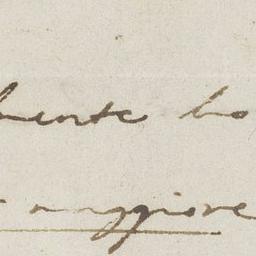 mente ho
maggiore